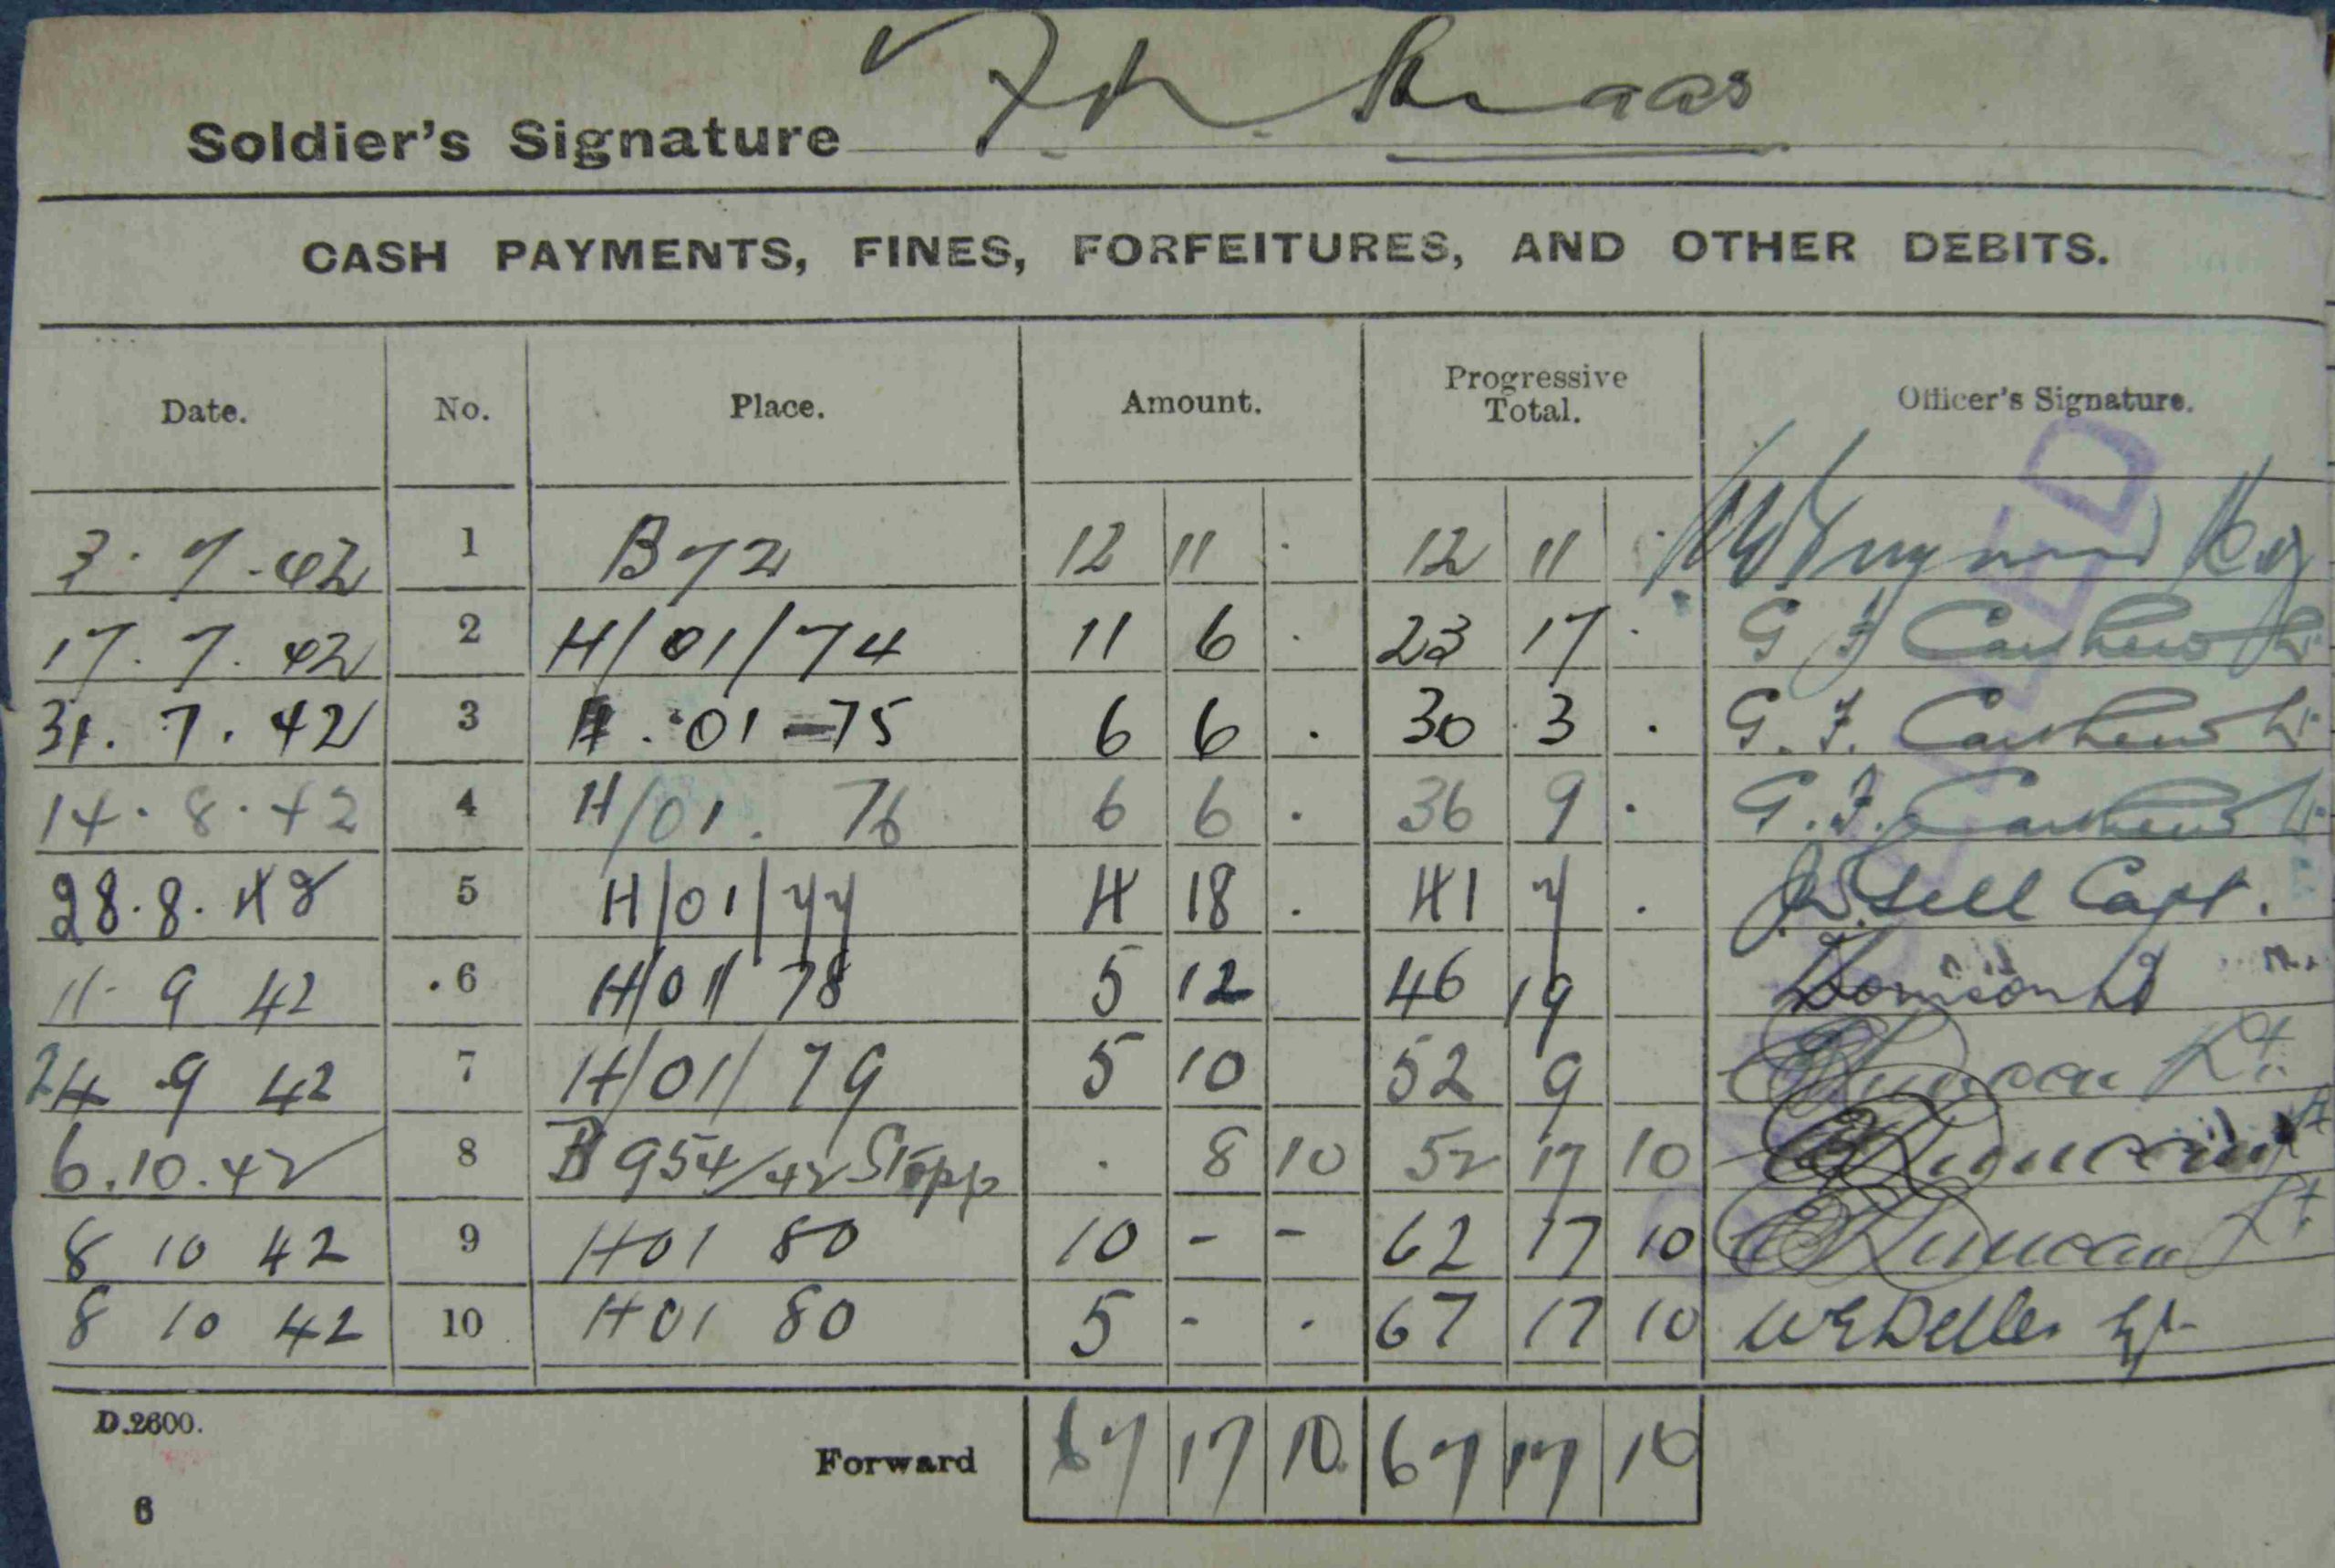 Soldier's Signature
CASH PAYMENTS, FINES, FORFEITURES, AND OTHER DEBITS.
Date. No. Place. Amount. Progressive Total. Officer's Signature.
3.7.42 1 B72 12 11 . 12 11 .
17.7.42 2 H/01/74 11 6 . 23 17 . G F Carthew Lt
31.7.42 3 H.01-75 6 6 . 30 3 . G.F. Carthew Lt
14.8.42 4 H/01. 76 6 6 . 36 9 . G.F. Carthew Lt
28.8.42 5 H/01/77 4 18 . 41 7 . Capt.
11. 9 42 6 H/01/ 78 5 12 46 19
24 9 42 7 H/01/ 79 5 10 52 9 Duncan Lt.
6.10.42 8 B 954/42 Stopp . 8 10 52 17 10 Duncan Lt
8 10 42 9 H01 80 10 - - 62 17 10 Duncan Lt.
8 10 42 10 H01 80 5 - . 67 17 10
D.2600.
Forward 67 17 10 67 17 10
6